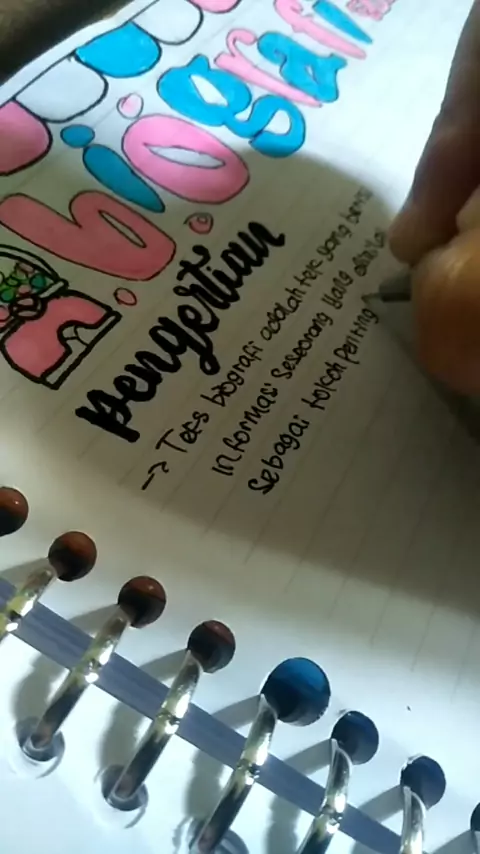 biografi
Pengertian
→ Teks biografi adalah teks yang berisi
informasi seseorang yang dinilai
sebagai tokoh penting